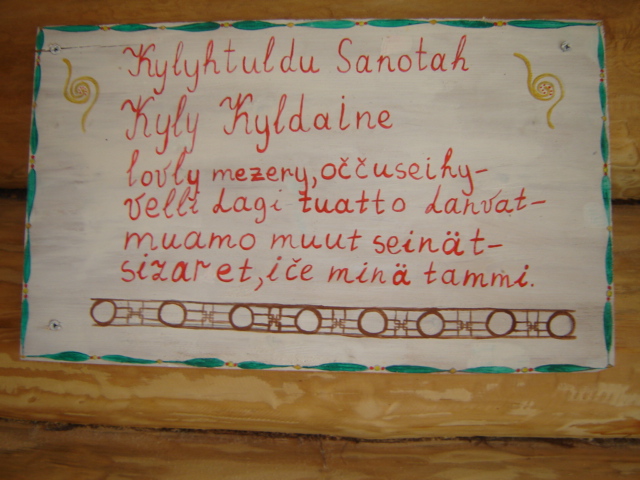 Kylyhtuldu Sanotah
Kyly Kyldaine
lovly mezery, oččuseihy-
velli dagi tuatto dahvat-
muamo muut seinät-
sizaret, iče minä tammi.